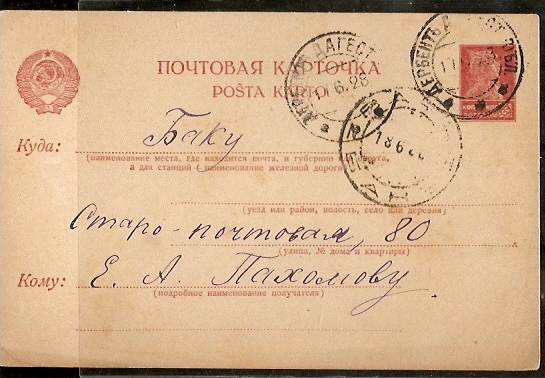 ПОЧТОВАЯ КАРТОЧКА
POŜTA KARTO
ДЕРБЕНТЪ
ДАГЕСТ
Куда: Баку
(наименование места, где находится почта, и губернии или округа,
а для станций наименование железной дороги)
18 6 2
(уезд или район, волость, село или деревня)
Старо-почтовая, 80
(улица, № дома и квартиры)
Кому: Е. А. Пахомову
(подробное наименование получателя)